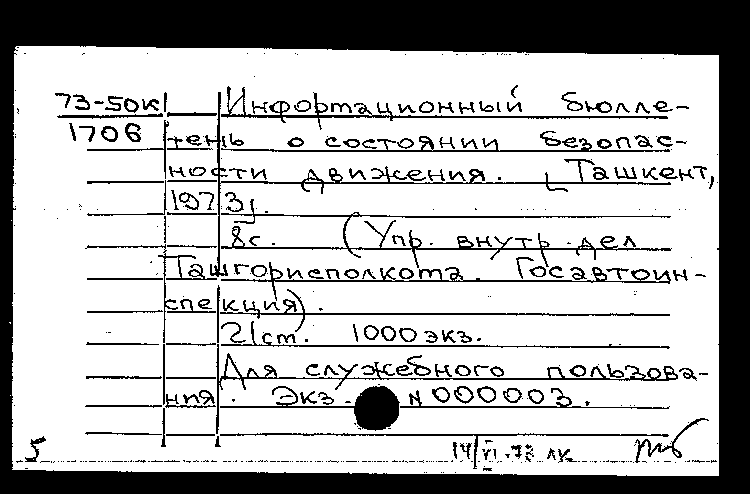 73-50к Информационный бюлле-
1706 тень о состоянии безопас-
ности движения. [Ташкент,
1973].
8с. (Упр. внутр. дел
Ташгорисполкома. Госавтоин-
спекция).
21см. 1000 экз.
Для служебного пользова-
ния. Экз. N 000003.
5 14/VI.73 лк